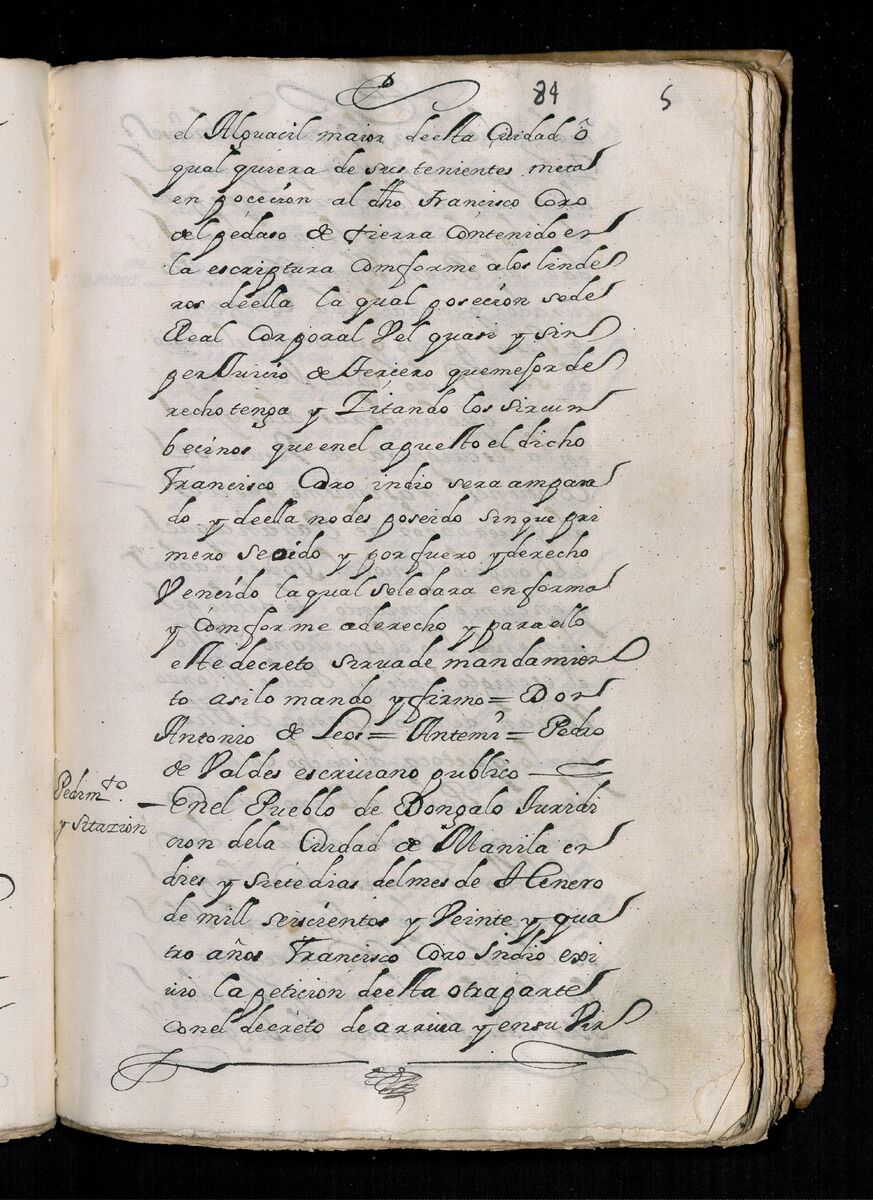 84 5
el Alguacil maior deesta Ciudad ô
qual quiera de sus tenientes meta
en poceción al dho Francisco Coro
del pedaso de tierra Contenido en
la escriptura Comforme alos linde
ros deella la qual poseción sede
Real Corporal Vel quasi y sin
perJuicio de tercero quemejor de
recho tenga y Zitando los sircum
becinos que enel apuesto el dicho
Francisco Coro indio sera ampara
do y deella no des poseido sinque pri
mero seoido y por fuero yderecho
Vencido la qual seledara enforma
y Comforme aderecho y paraello
este decreto sirua de mandamien
to asilo mando yfirmo = Don
Antonio de Leos = Antemi = Pedro
de Valdes escriuano publico
Pedim.to
y sitazion
Enel Pueblo de Dongalo Juridi
cion dela Ciudad de Manila en
dies y siete dias delmes de Henero
de mill seiscientos y Veinte y qua
tro años Francisco Coro Indio exi
uio la peticion deesta otra parte
conel decreto de arriua y ensu Vir